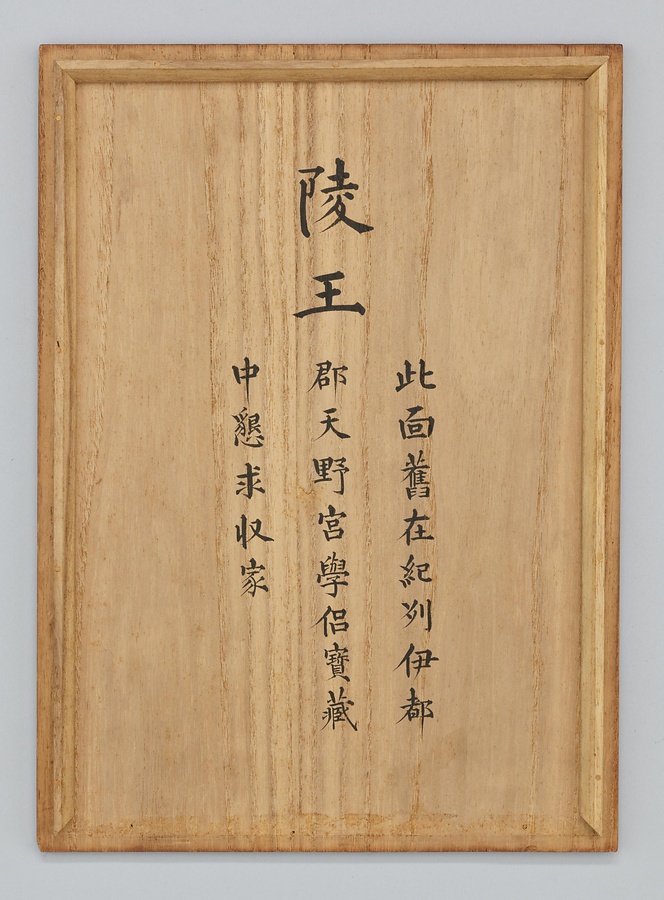 陵王
此面舊在紀列伊都
郡天野宮學侶寶藏
中懇求収家